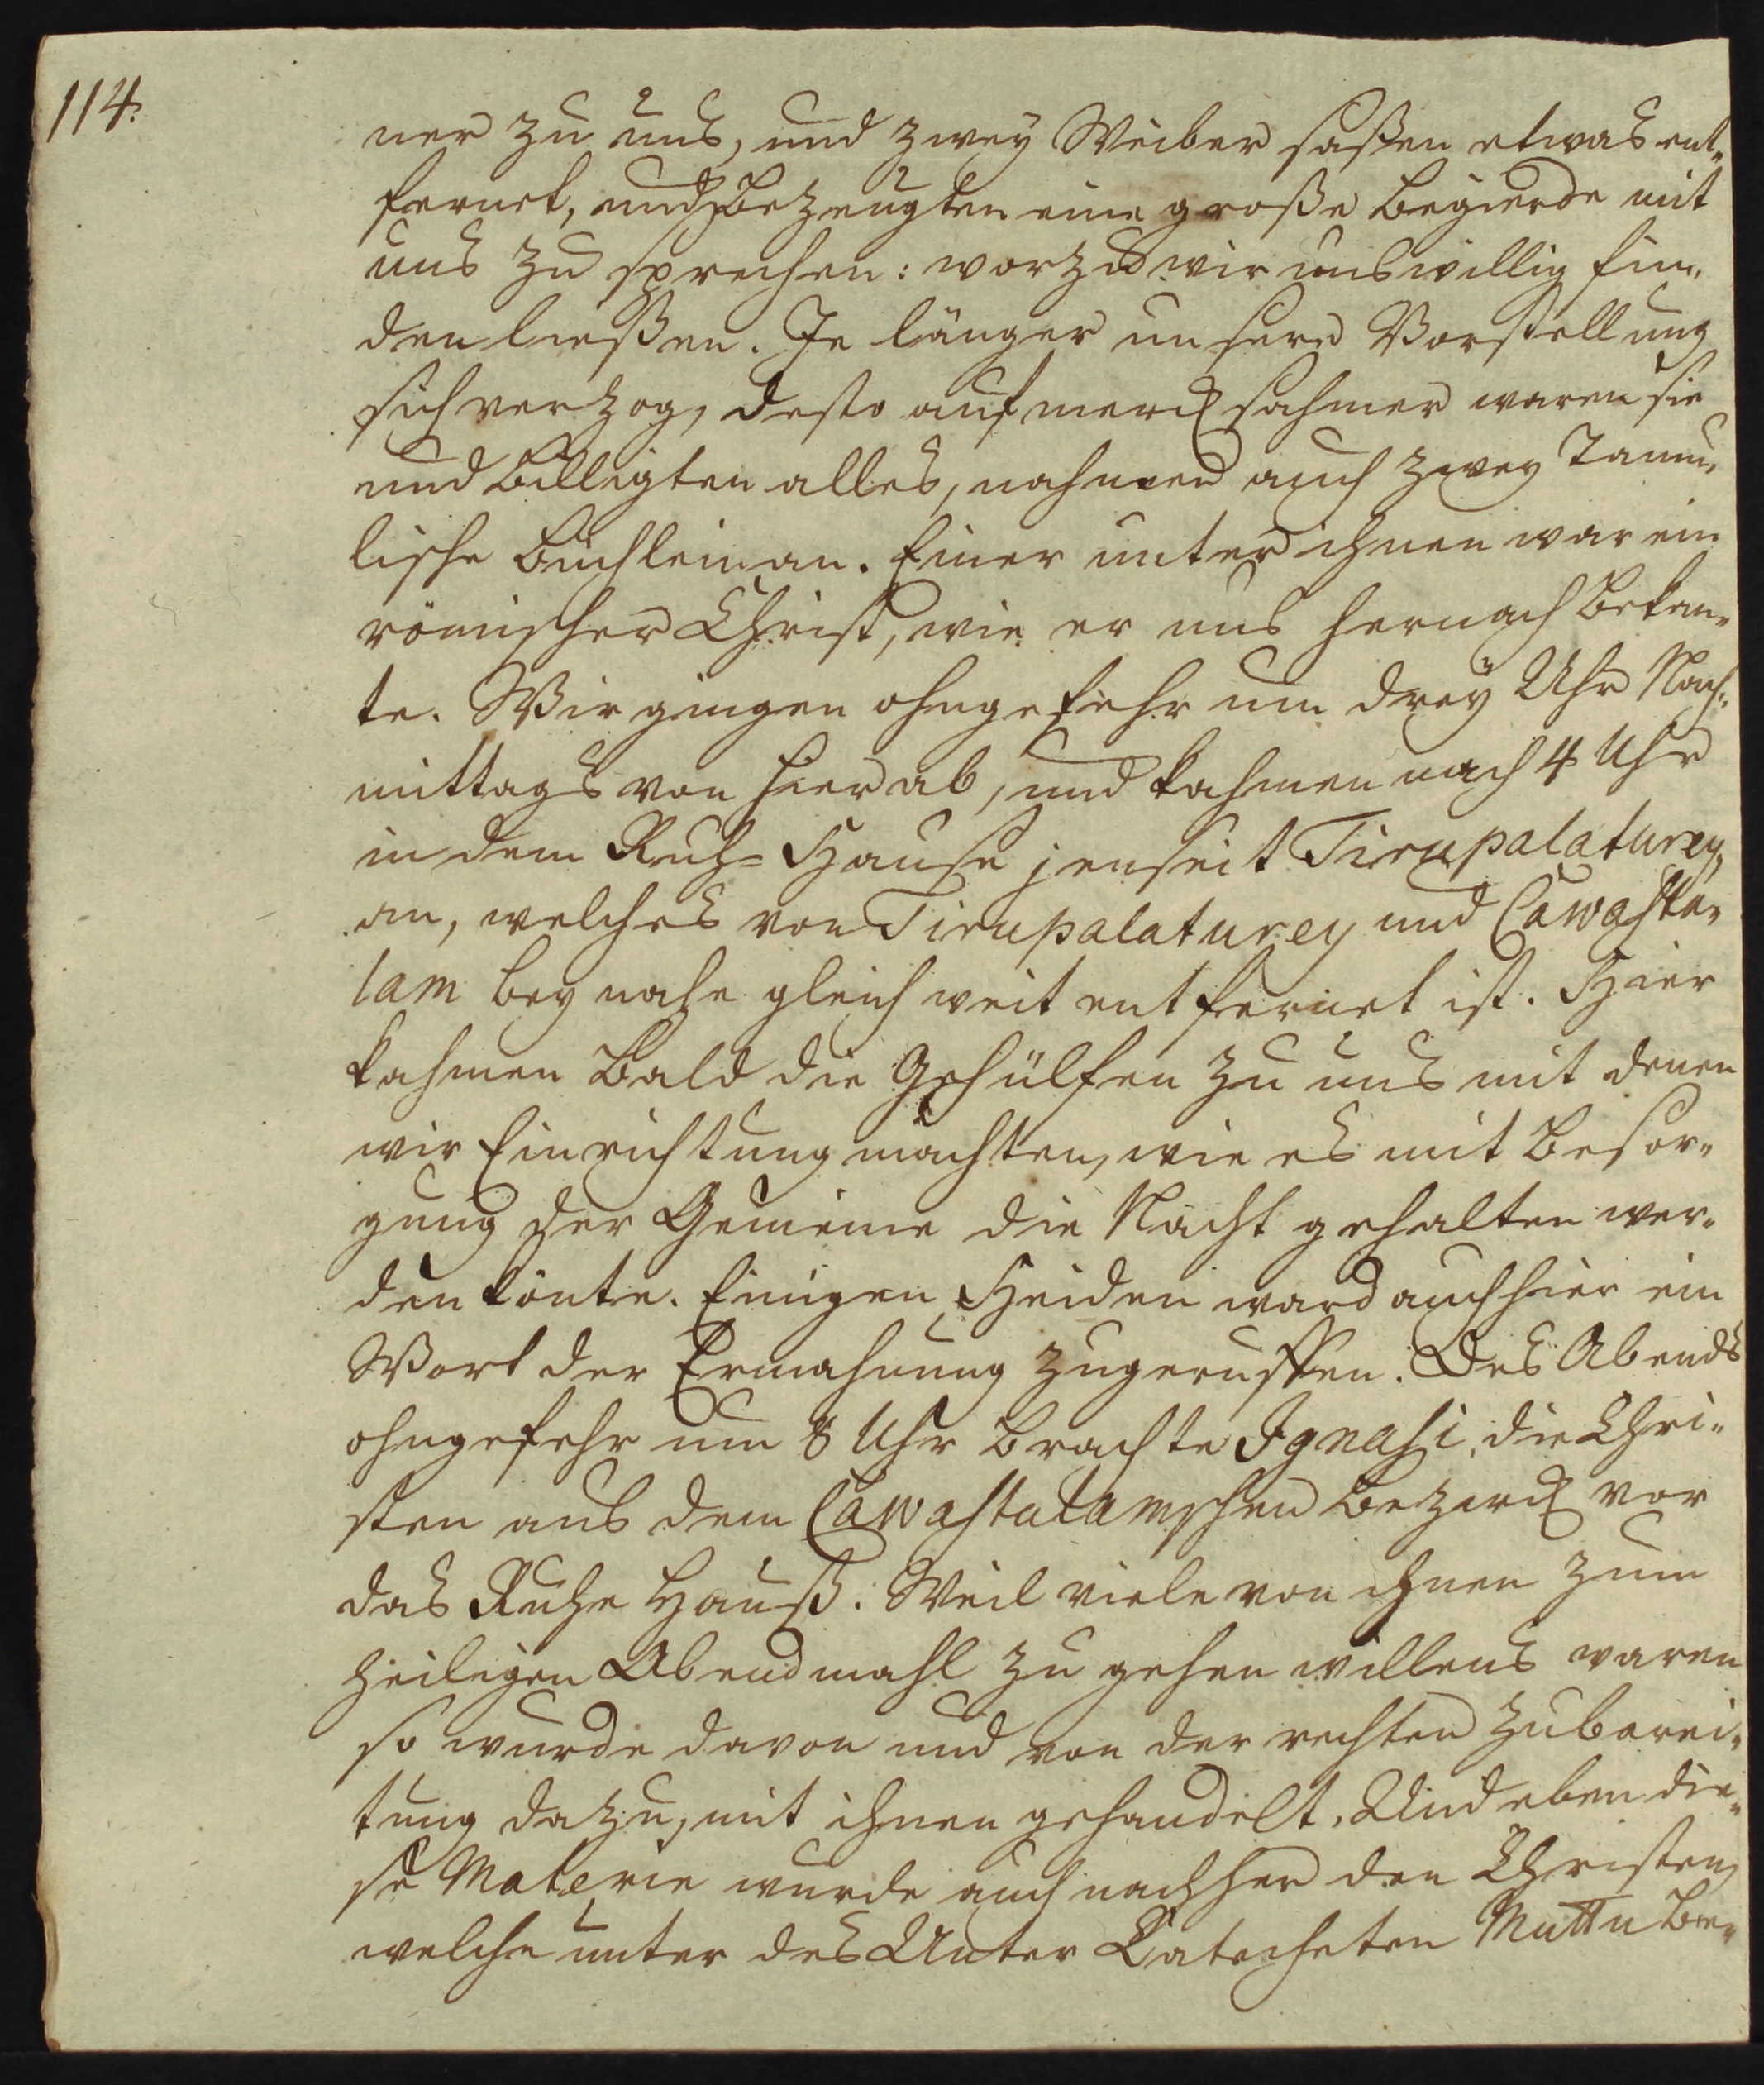 114.
ner zu uns, und zwey Weiber saßen etwas ent„
fernet, und bezeugten eine große Begierde mit
uns zu sprechen: worzu wir uns willig fin„
den ließen. Je länger unsere Vorstellung
sich verzog, desto aufmercksahmer waren sie
und billigten alles, nahmen auch zwey Tamu„
lische Büchlein an. Einer unter ihnen war ein
römischer Christ, wie er uns hernach bekan„
te. Wir gingen ohngefehr um drey Uhr Nach„
mittags von hier ab, und kahmen nach 4 Uhr
in dem Ruh-Hause jenseit Tirupalaturey,
an, welches von Tirupalaturey und Cawasta„
lam bey nahe gleich weit entfernet ist. Hier
kahmen bald die Gehülfen zu uns mit denen
wir Einrichtung machten, wie es mit Besor„
gung der Gemeine die Nacht gehalten wer„
den könte. Einigen Heiden ward auch hier ein
Wort der Ermahnung zugeruffen. Des Abends
ohngefehr um 8 Uhr brachte Ignasi, die Chri„
sten aus dem Cawastalamschen Bezirck vor
das Ruhe Hauß. Weil viele von ihnen zum
heiligen Abendmahl zu gehen willens waren
so wurde davon und von der rechten Zuberei„
tung dazu, mit ihnen gehandelt. Und eben die„
se Materie wurde auch nachher den Christen,
welche unter des Unter Catecheten Muttu be„